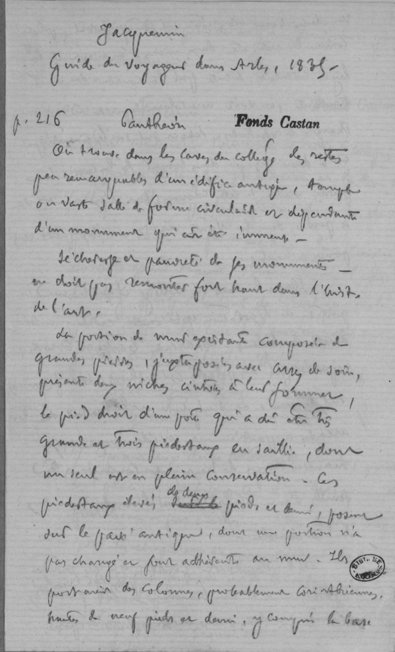 Jacquemin
Guide du voyageur dans Arles, 1835 –
p. 216 Panthéon Fonds Castan
On trouve dans les caves du collège des restes
peu remarquables d'un édifice antique, temple
ou vaste salle de forme circulaire et dépendante
d'un monument qui eût été immense –
Sécheresse et pauvreté de ses ornements –
ne doit pas remonter fort haut dans l'hist.
de l'art.
La portion de mur existante composée de
grandes pierres, juxtaposées avec assez de soin,
présente deux niches cintrées à leur sommet,
le pied droit d'une porte qui a dû être très
grande et trois piédestaux en saillie, dont
un seul est en pleine conservation. Ces
piédestaux élevés de deux pieds et demi, posent
sur le pavé antique, dont une portion n'a
pas changé et font adhérents au mur. Ils
portaient des colonnes, probablement corinthiennes,
hautes de neuf pieds et demi, y compris la base